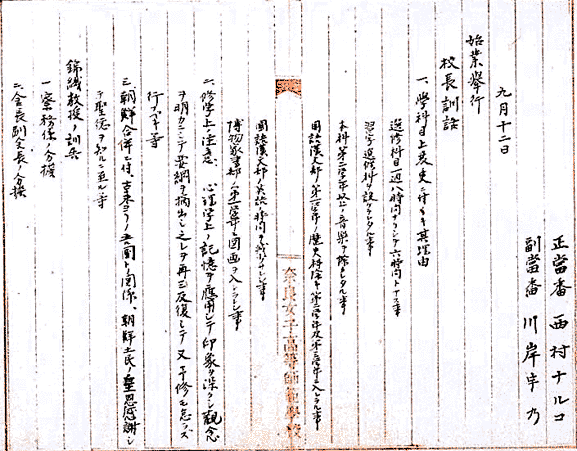 九月十二日
正當番 西村ナルコ
副當番 川岸
始業擧行
校長訓話
一、學科目上変更ニ付テキ其理由
選修科目一週八時間ヲシテ六時間トナス事
習字選修科ヲ設ケラレタル事
本科第二学年以上ノ音樂ヲ除キタル事
國語漢文部ノ第一学年ノ歴史科ヲ第二学年及第三学年ニ入レラル事
國語漢文部ノ英語ノ時間ヲ減ゼラレシ事
博物家事部ノ第一学年ニ図画ヲ入レラレシ事
二、修学上ノ注意 心理学上ノ記憶ヲ應用シテ印象ヲ深クシ観念
ヲ明カニシテ要綱ヲ摘出シ之レヲ再三反復シテ又予修モ怠ラズ
行フベキ事
三、朝鮮合併ニ付、古来ヨリノ我國トノ関係、朝鮮土民ノ聖恩感謝シ
テ聖徳ヲ知ルニ至ル事
錦織教授ノ訓告
一 寮務係ノ分擔
二、会長副会長ノ分擔
奈良女子高等師範學校